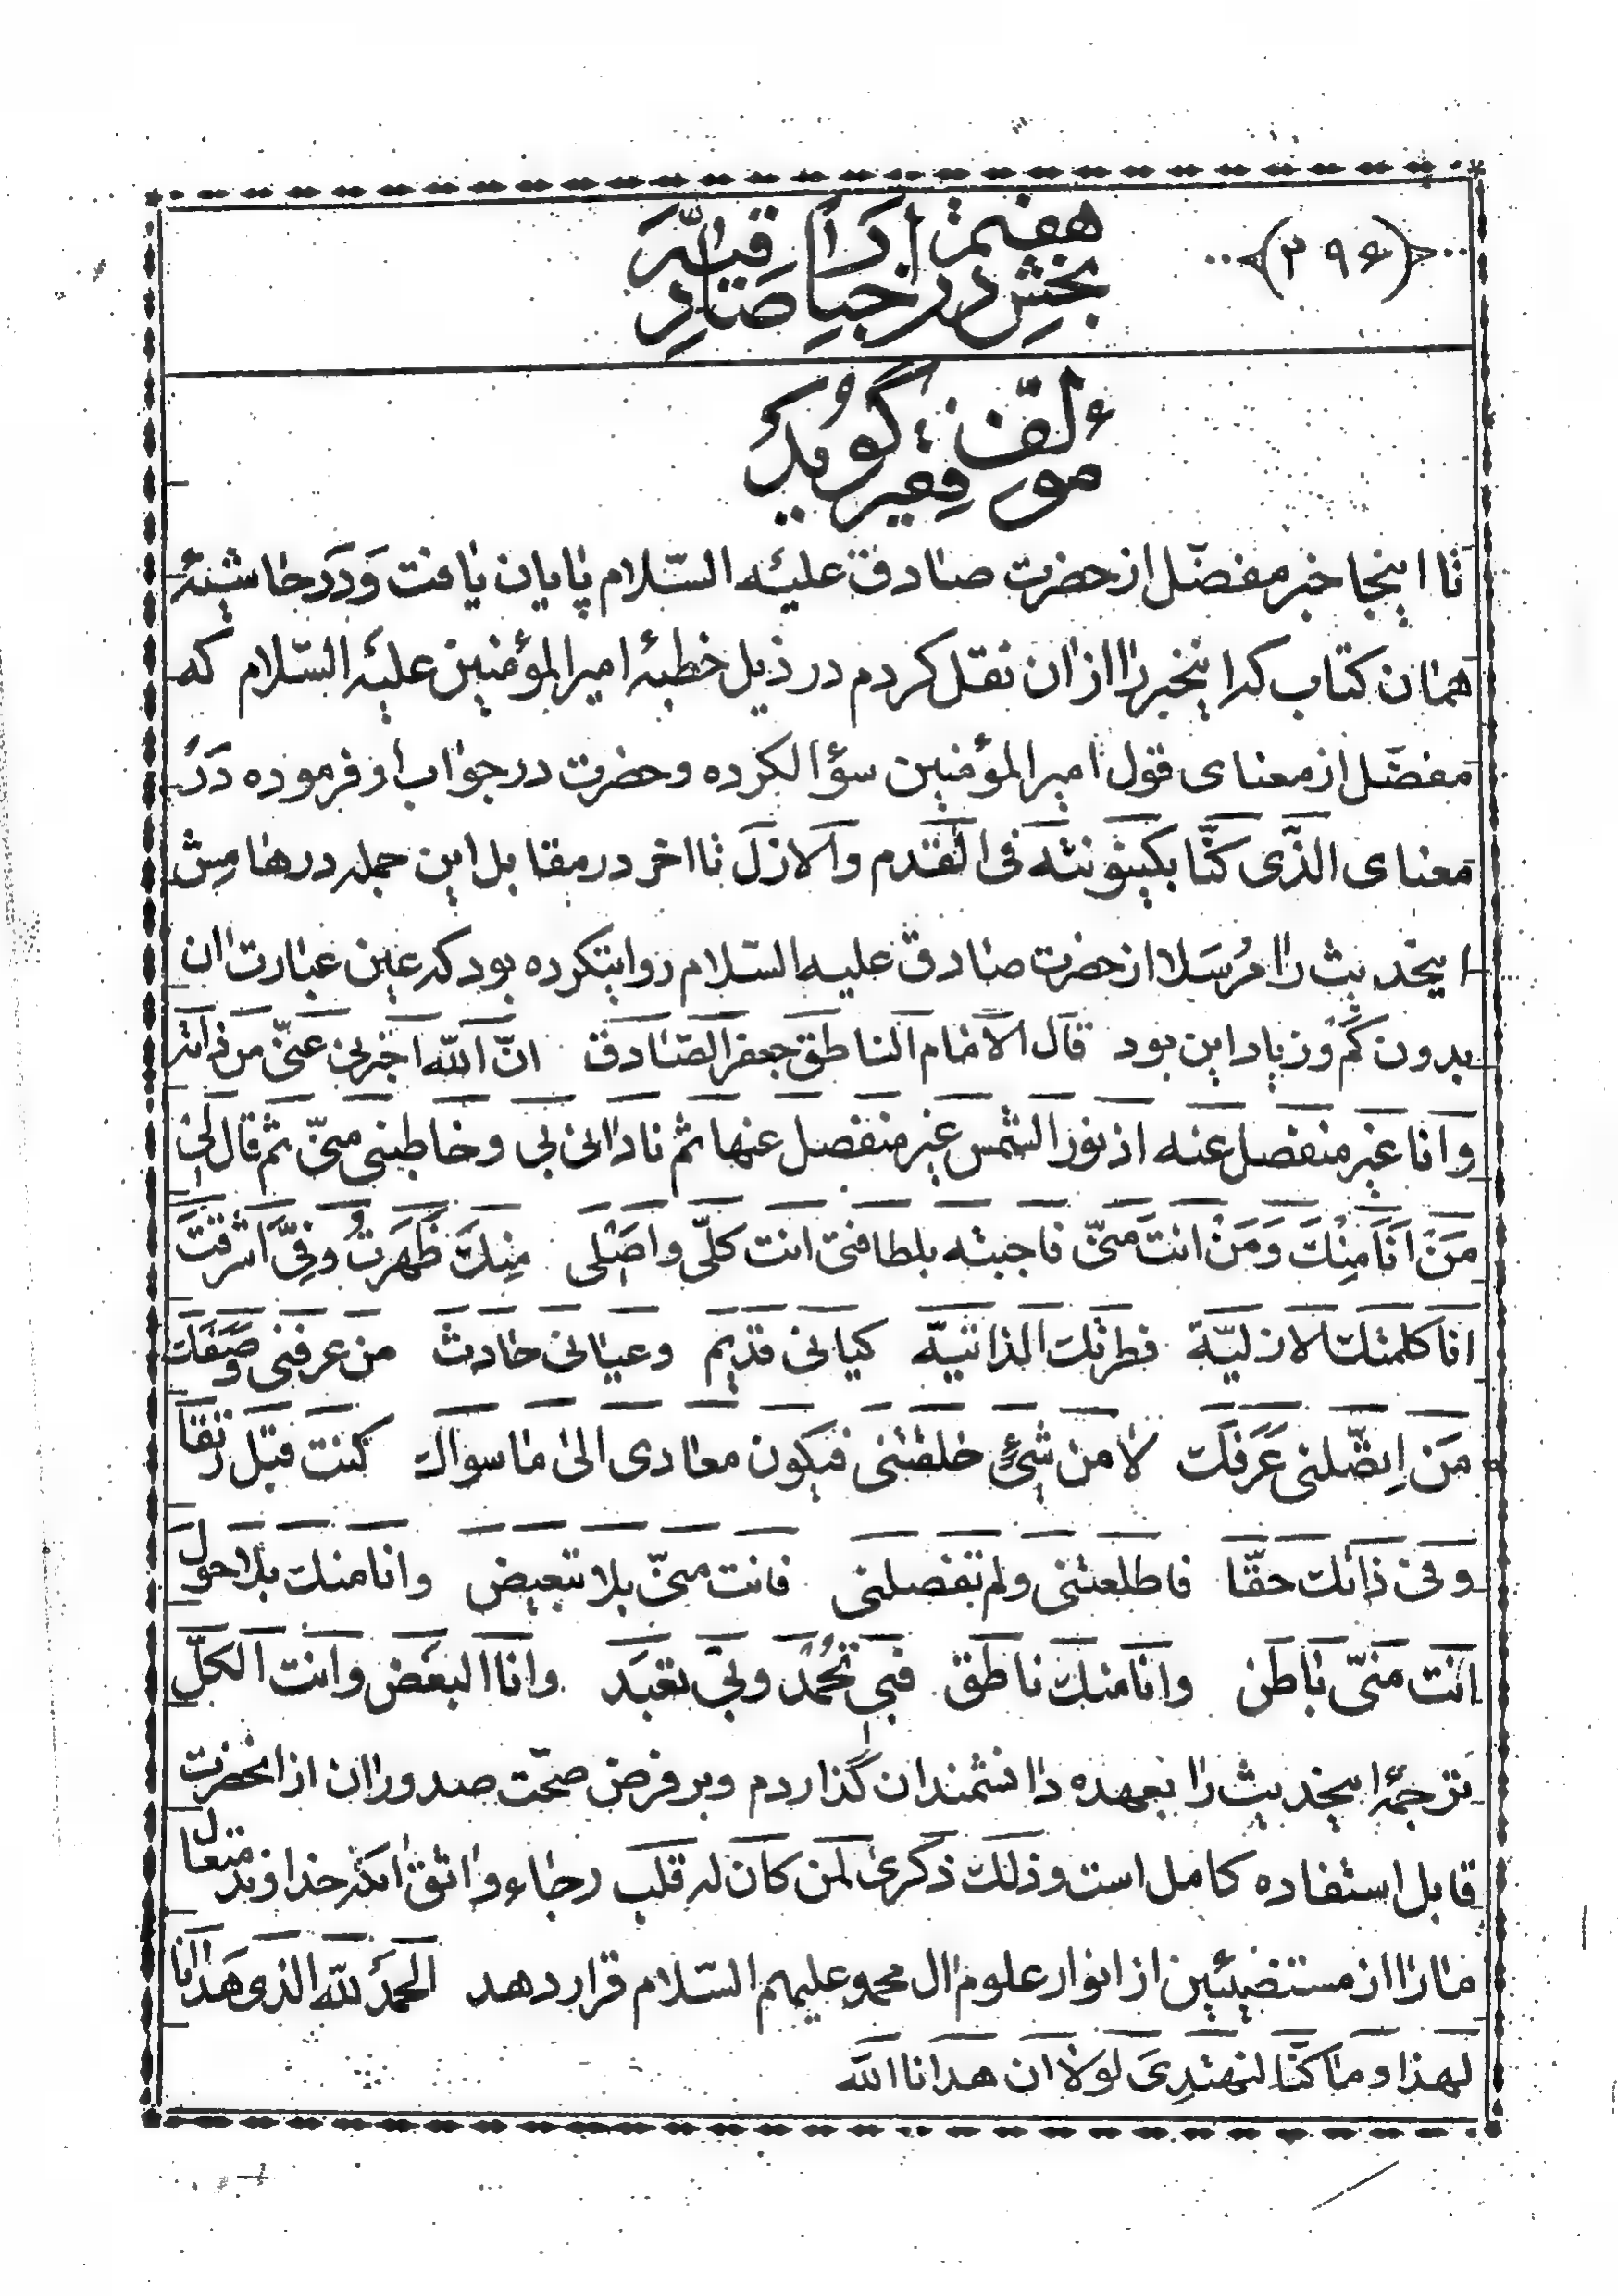 ﴿۲۹۶﴾
بخش هفتم در اخبار صادقیّه
مؤلّف فقیر گوید
تا اینجا خبر مفضّل از حضرت صادق علیه السّلام پایان یافت وَ دَر حاشیهٔ
همان کتاب که اینخبر را از ان نقل کردم در ذیل خطبهٔ امیرالمؤمنین علیه السّلام که
مفضّل از معنای قول امیرالمؤمنین سؤالکرده و حضرت در جواب او فرموده دَر
معنای الذّی کنّا بکینونته فی القدم والازل تا اخر در مقابل این جمله در هامش
اینحدیث را مُرسَلا از حضرت صادق علیه السّلام روایتکرده بود که عین عبارت ان
بدون کم و زیاد این بود قال الامام الناطق جعفر الصّادق انّ الله اخترنی عنّی من ذاته
وانا غیر منفصل عنه اذ نور الشمس غیر منفصل عنها ثم نادانی بی وخاطبنی منّی ثم قال لی
مَنْ اَنَا مِنْكَ وَمَنْ انتَ منّی فاجبته بلطافتی انت کلّی واصلی مِنكَ ظَهَرتُ وفِیَّ اشرقت
انا کلمتك الازلیّة فطرتك الذاتیّه کیانی قدیم وعیانی حادث من عرفنی وصَفَك
مَن اِتصّلنی عَرَفَك لا من شیئٍ خلقتنی فیکون معادی الی ما سواك کنت قبل رتقا
وفی ذاتك حقّا فاطلعتنی ولم تفصلنی فانت منّی بلا تبعیض وانا منك بلا حول
انت منّی باطن وانا منك ناطق فبی تُحْمَد وبی تعبَد وانا البعض وانت الکلّ
ترجمهٔ اینحدیث را بعهده دانشمندان گذاردم و بر فرض صحّت صدور ان از انحضرت
قابل استفاده کامل است وذلك ذکری لمن کان له قلب رجاء واثق انکه خداوند متعال
ما را از مستضیئین از انوار علوم ال محمد علیهم السّلام قرار دهد الحمد لله الذی هَدانا
لهذا وما کنّا لنهتدِیَ لولا ان هدانا الله